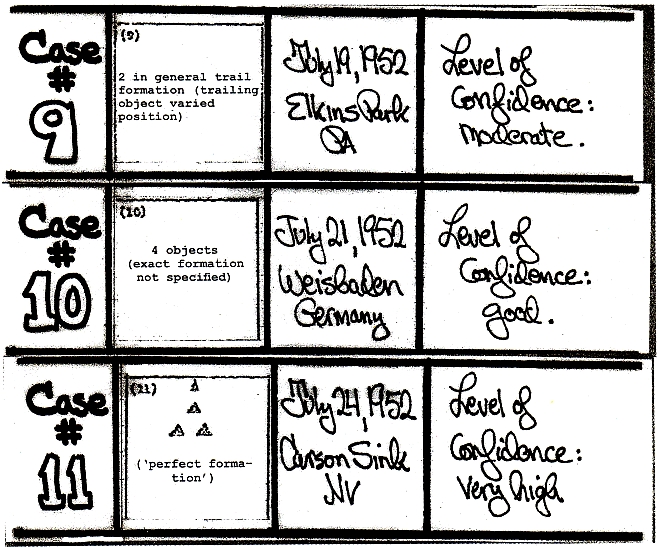 Case
#
9
(9)
2 in general trail
formation (trailing
object varied
position)
July 19, 1952
Elkins Park
PA
Level of
Confidence:
moderate.
Case
#
10
(10)
4 objects
(exact formation
not specified)
July 21, 1952
Weisbaden
Germany
Level of
Confidence:
good.
Case
#
11
(11)
('perfect forma-
tion')
July 24, 1952
Carson Sink
NV
Level of
Confidence:
Very high